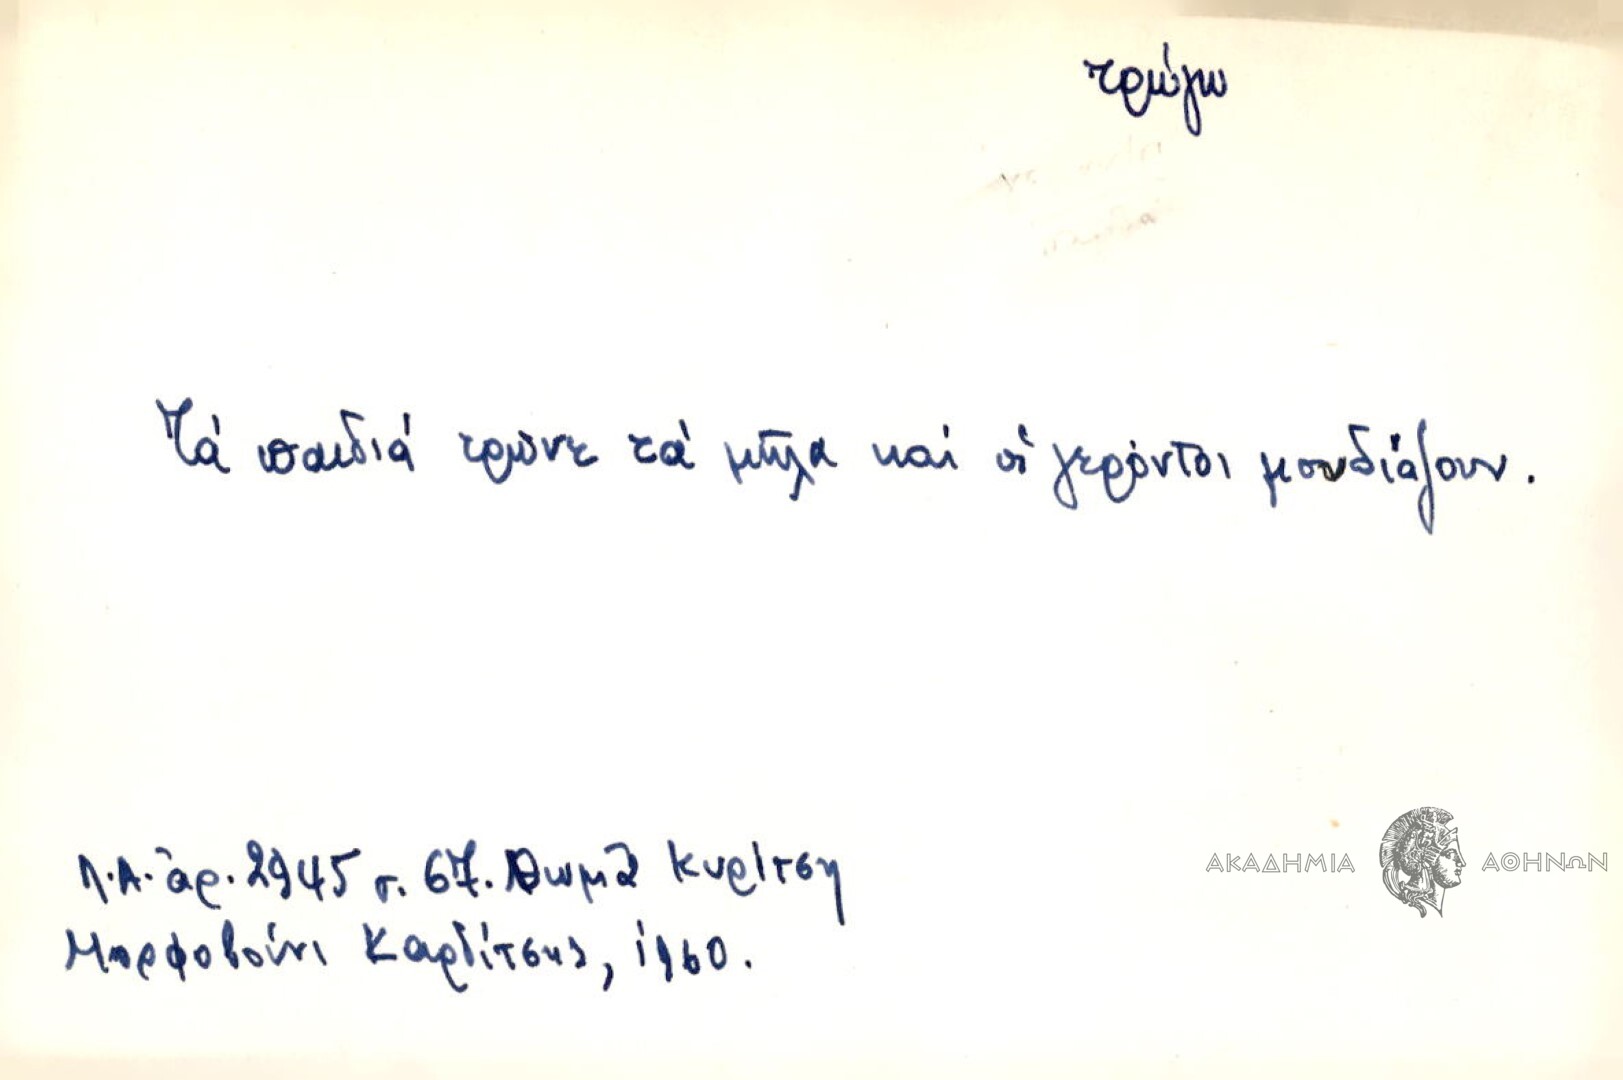 τρώγω
Τά παιδιά τρῶνε τά μῆλα καί οἱ γερόντοι μουδιάζουν.
Λ.Α. ἀρ. 2945 σ. 67. Θωμᾶ Κυρίτση
Μορφοβούνι Καρδίτσης, 1960.
ΑΚΑΔΗΜΙΑ ΑΘΗΝΩΝ